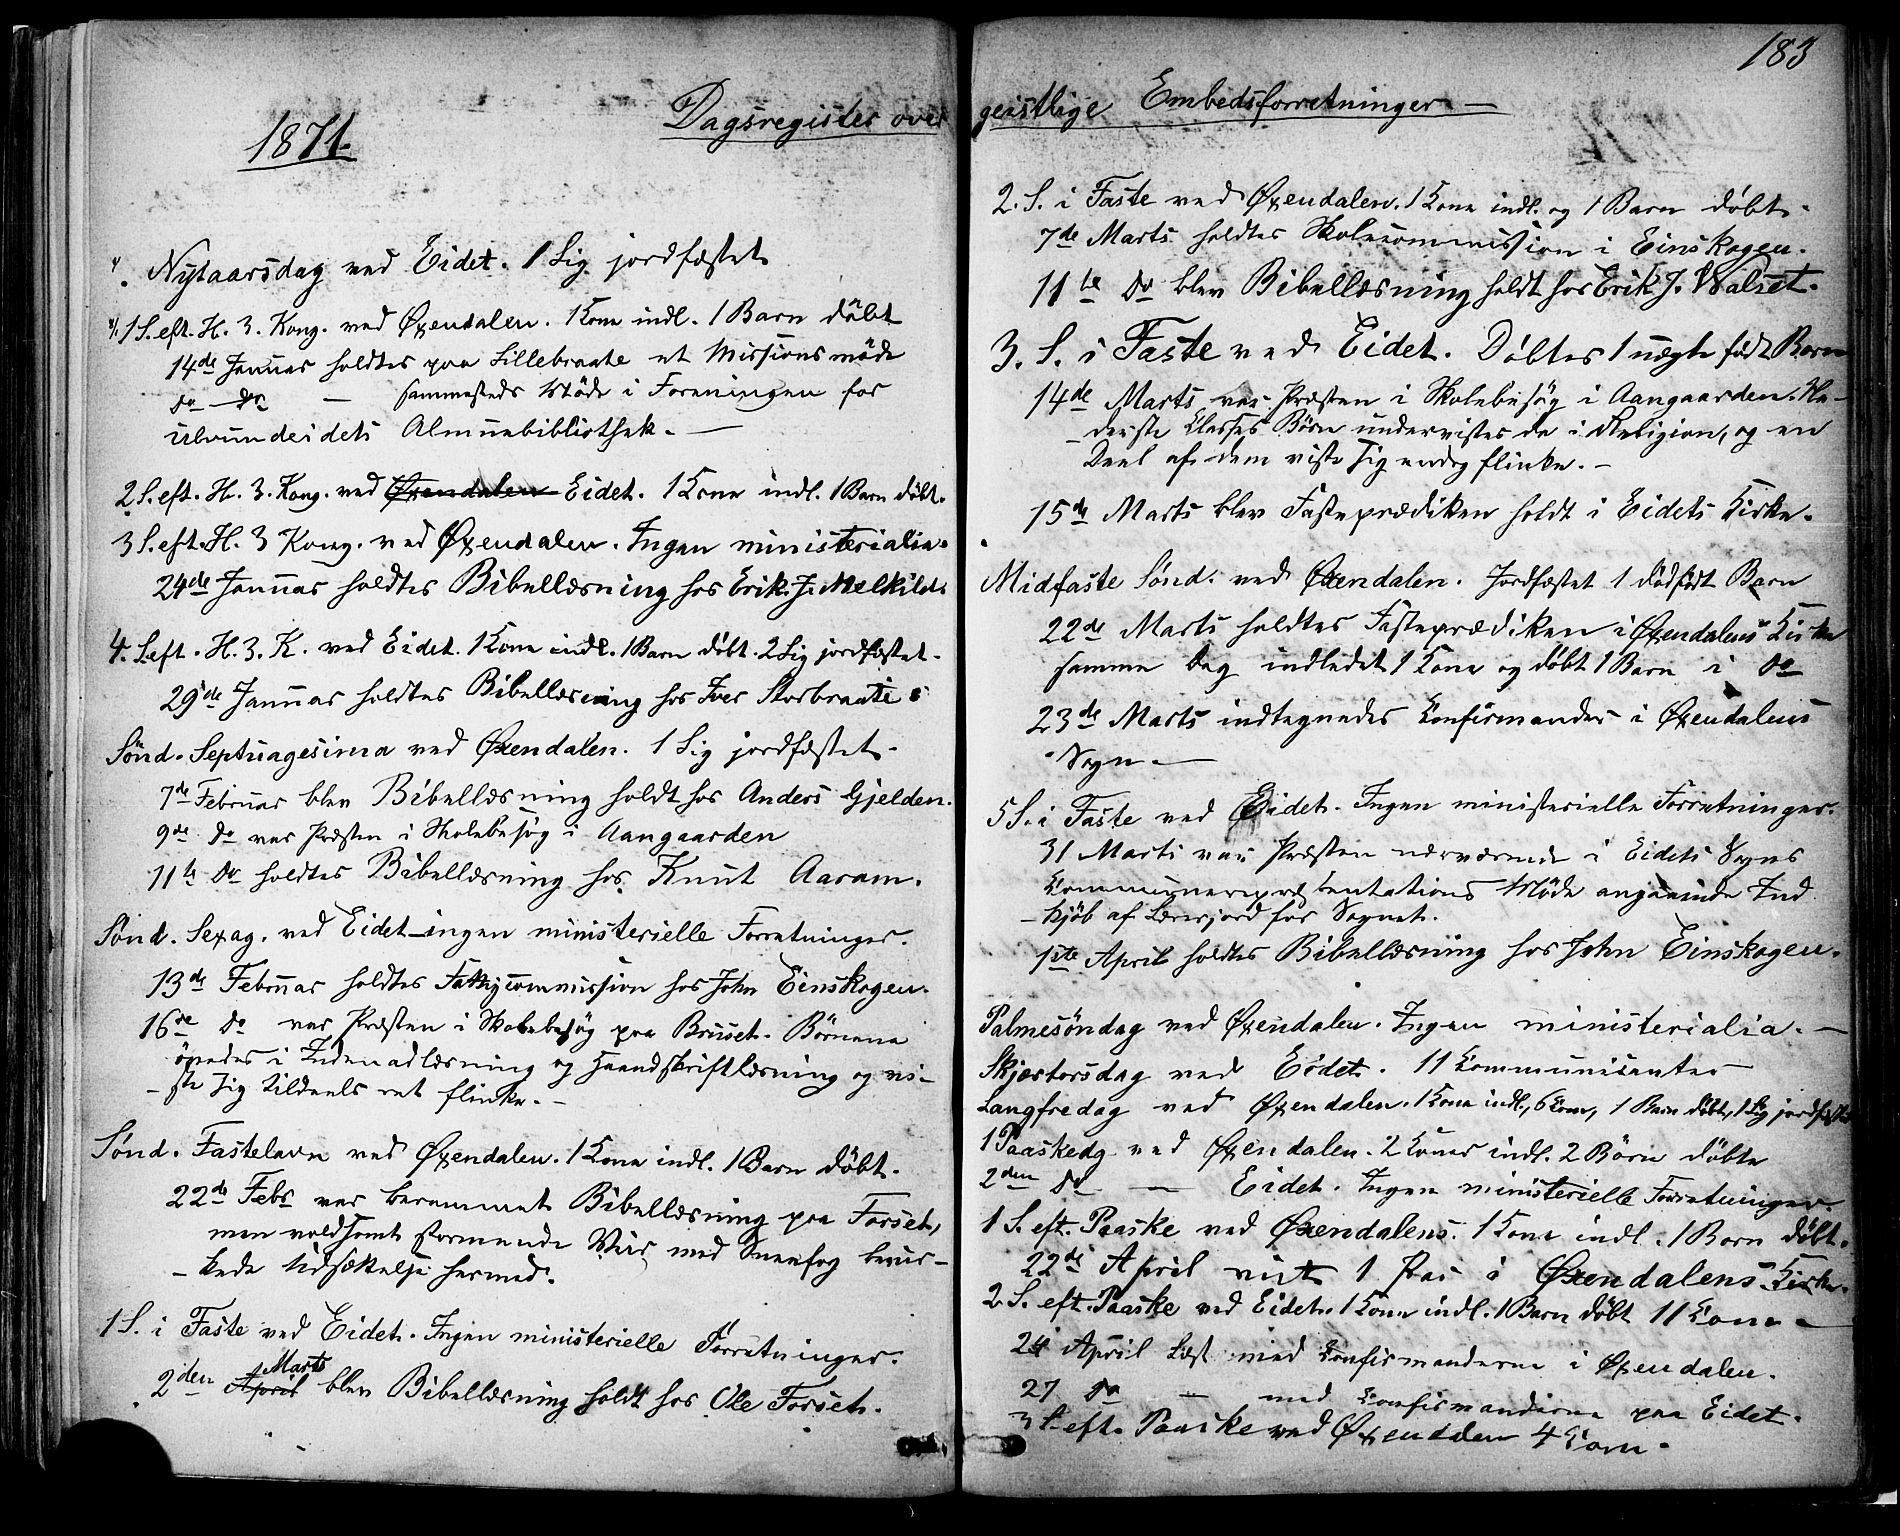 183
Dagsregister over geistlige Embedsforretninger. —
1871.
Nytaarsdag ved Eidet. 1 Lig jordfæstet.
1 S. eft. H. 3. Kong. ved Øxendalen. 1 Kone indl. 1 Barn döbt
14de Januar holdtes paa Lillebraate et Missionsmöde
do do — sammesteds Möde i Foreningen for
Ulvundeidets Almuebibliothek. —
2 S. eft. H. 3. Kong. ved Øxendalen Eidet. 1 Kone indl. 1 Barn döbt.
3 S. eft. H. 3 Kong. ved Øxendalen. Ingen ministerialia.
24de Januar holdtes Bibellæsning hos Erik J. Melkild.
4. S. eft. H. 3. K. ved Eidet. 1 Kone indl. 1 Barn döbt. 2 Lig jordfæstet.
29de Januar holdtes Bibellæsning hos Iver Storbraate
Sönd. Septuagesima ved Øxendalen. 1 Lig jordfæstet.
7de Februar blev Bibellæsning holdt hos Anders Gjelden.
9de do var Præsten i Skolebesög i Aangaarden
11te do holdtes Bibellæsning hos Knut Aaram.
Sönd. Sexag. ved Eidet ingen ministerielle Forretninger.
13de Februar holdtes Fattigcommission hos John Einskogen.
16de do var Præsten i Skolebesög paa Bruset. Börnene
övedes i Indenadlæsning og Haandskriftlæsning og vi-
-ste sig tildeels ret flinke. —
Sönd. Fastelavn ved Øxendalen. 1 Kone indl. 1 Barn döbt.
22de Febr var berammet Bibellæsning paa Forset,
men voldsomt stormende Veir med Sneefog bevir-
-kede Udsættelse hermed.
1 S. i Faste ved Eidet. Ingen ministerielle Forretninger.
Marts
2den April blev Bibellæsning holdt hos Ole Forset.
2. S. i Faste ved Øxendalen. 1 Kone indl. og 1 Barn döbt.
7de Marts holdtes Skolecommission i Einskogen.
11te do blev Bibellæsning holdt hos Erik J. Walset.
3. S. i Faste ved Eidet. Döbtes 1 uægte födt Barn
14de Marts var Præsten i Skolebesög i Aangaarden.
-derste Classes Börn undervistes da i Religion, og en
Deel af dem viste sig endog flinke. —
15de Marts blev Fasteprædiken holdt i Eidets Kirke.
Midfaste Sönd. ved Øxendalen. Jordfæstet 1 dödfödt Barn
22de Marts holdtes Fasteprædiken i Øxendalens Kirke
samme Dag indledet 1 Kone og döbt 1 Barn i do
23de Marts indtegnedes Confirmander i Øxendalens
Sogn. —
5 S. i Faste ved Eidet. Ingen ministerielle Forretninger.
31 Marts var Præsten nærværende i Eidets Sogns
Communerepræsentations Möde angaaende Ind
-kjöb af Lærerjord for Sognet.
1ste April holdtes Bibellæsning hos John Einskogen.
Palmesöndag ved Øxendalen. Ingen ministerialia. —
Skjærtorsdag ved Eidet. 11 Communicanter
Langfredag ved Øxendalen. 1 Kone indl., 6 Com, 1 Barn döbt, 1 Lig jordfæstet
1 Paaskedg ved Øxendalen. 2 Koner indl. 2 Börn döbte
2den do — Eidet. Ingen ministerielle Forretninger.
1 S. eft. Paaske ved Øxendalens. 1 Kone indl. 1 Barn döbt.
22de April viet 1 Par i Øxendalens Kirke.
2 S. eft. Paaske ved Eidet. 1 Kone indl. 1 Barn döbt 11 Com —
24 April Læst med Confirmanderne i Øxendalen.
27 do — med Confirmanderne paa Eidet.
3 S. eft. Paaske ved Øxendalen 4 Com.